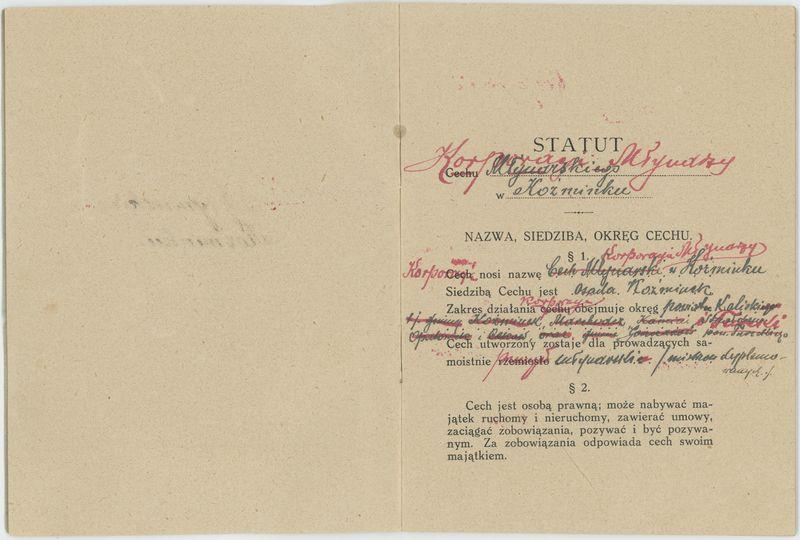 STATUT
Korporacji Młynarzy
Cechu Młynarskiego
w Koźminku
NAZWA, SIEDZIBA, OKRĘG CECHU.
§ 1. Korporacja Młynarzy
Korporacja Cech nosi nazwę Cech Młynarski w Koźminku
Siedzibą Cechu jest osada Koźminek
Korporacja
Zakres działania cechu obejmuje okręg powiatu Kaliskiego
gminy Koźminek,
Opatówek i oraz gminy pow. Tureckiego
Cech utworzony zostaje dla prowadzących sa-
moistnie rzemiosło młynarskie
§ 2.
Cech jest osobą prawną; może nabywać ma-
jątek ruchomy i nieruchomy, zawierać umowy,
zaciągać zobowiązania, pozywać i być pozywa-
nym. Za zobowiązania odpowiada cech swoim
majątkiem.